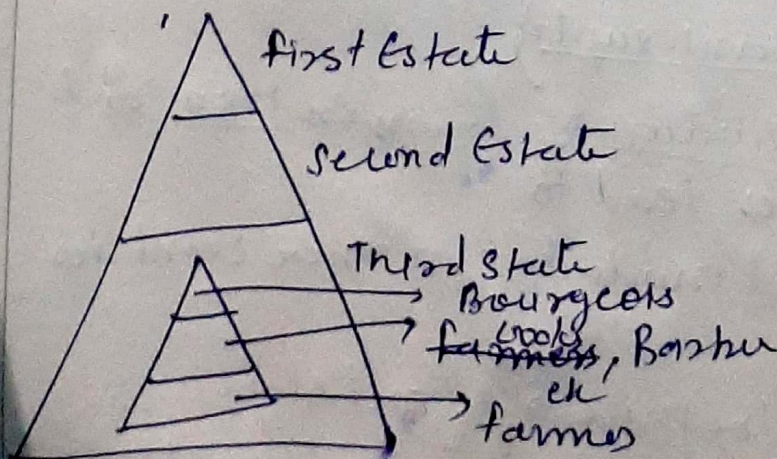 First Estate
Second Estate
Third State
Bourgeois
cooks
farmers, Barber
etc
farmers